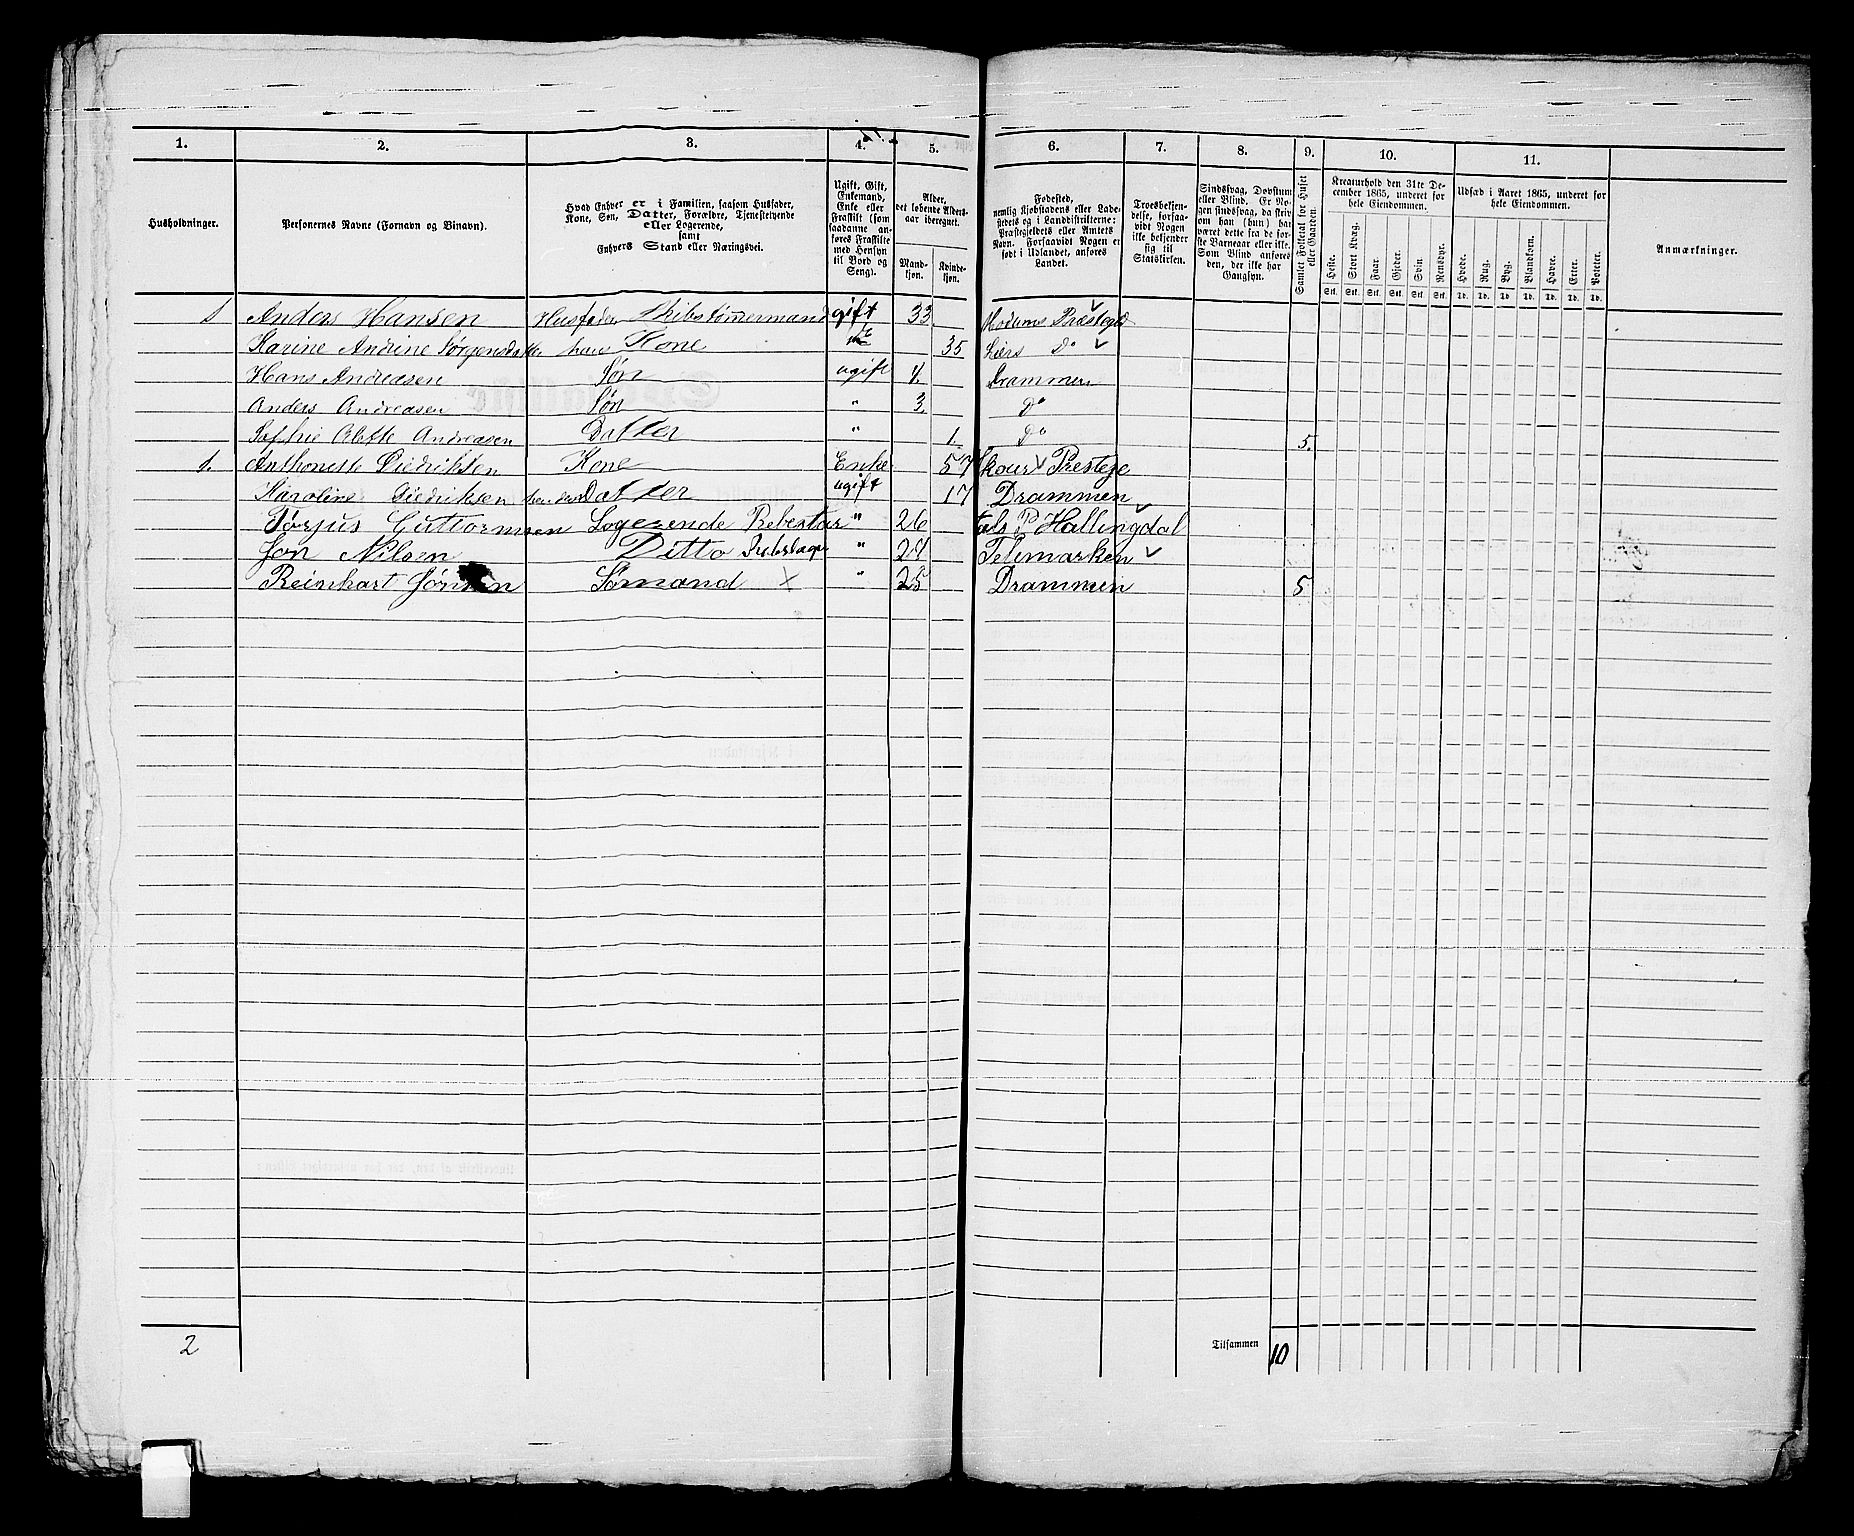 1. 2. 3. 4. 5. 6. 7. 8. 9. 10. 11.
Husholdninger.
Personernes Navne (Fornavn og Binavn).
Hvad Enhver er i Familien, saasom Husfader,
Kone, Søn, Datter, Forældre, Tjenestetyende
eller Logerende,
samt
Enhvers Stand eller Næringsvei.
Ugift, Gift,
Enkemand,
Enke eller
Fraskilt (som
saadanne an-
føres Fraskilte
med Hensyn
til Bord og
Seng).
Alder,
det løbende Alders-
aar iberegnet.
Mand-
kjøn.
Kvinde-
kjøn.
Fødested,
nemlig Kjøbstadens eller Lade-
stedets og i Landdistrikterne:
Præstegjeldets eller Amtets
Navn. Forsaavidt Nogen er
født i Udlandet, anføres
Landet.
Troesbekjen-
delse, forsaa-
vidt Nogen
ikke bekjender
sig til
Statskirken.
Sindssvag, Døvstum
eller Blind. Er No-
gen sindssvag, da skriv
om han (hun) har
været dette fra de før-
ste Barneaar eller ikke.
Som Blind anføres
den, der ikke har
Gangsyn.
Samlet Folketal for Huset
eller Gaarden.
Kreaturhold den 31te De-
cember 1865, underet for
hele Eiendommen.
Heste. Stort Kvæg. Faar. Gjeder. Svin. Rensdyr.
Stk. Stk. Stk. Stk. Stk. Stk.
Udsæd i Aaret 1865, underet for
hele Eiendommen.
Hvede. Rug. Byg. Blandkorn. Havre. Erter. Poteter.
Td. Td. Td. Td. Td. Td. Td.
Anmærkninger.
1 Anders Hansen Husfader Skibstømmermand gift 33. Modums Præstegd
Karine Andrine Jørgensdatter hans Kone 35 Liers Do
Hans Andreasen Søn ugift 4. Drammen
Anders Andreasen Søn " 3. Do
Andreasen Datter " 1. Do 5.
1. Anthonette Diedriksen Kone Enke 57 Præsteg
Karoline Diedriksen hendes Datter ugift 17 Drammen
Tørjus Guttormsen Logerende " 26 Hallingdal
Jon Nilsen Ditto " 24 Telemarken
Reinhart Sømand × " 25 Drammen 5
2
Tilsammen 10